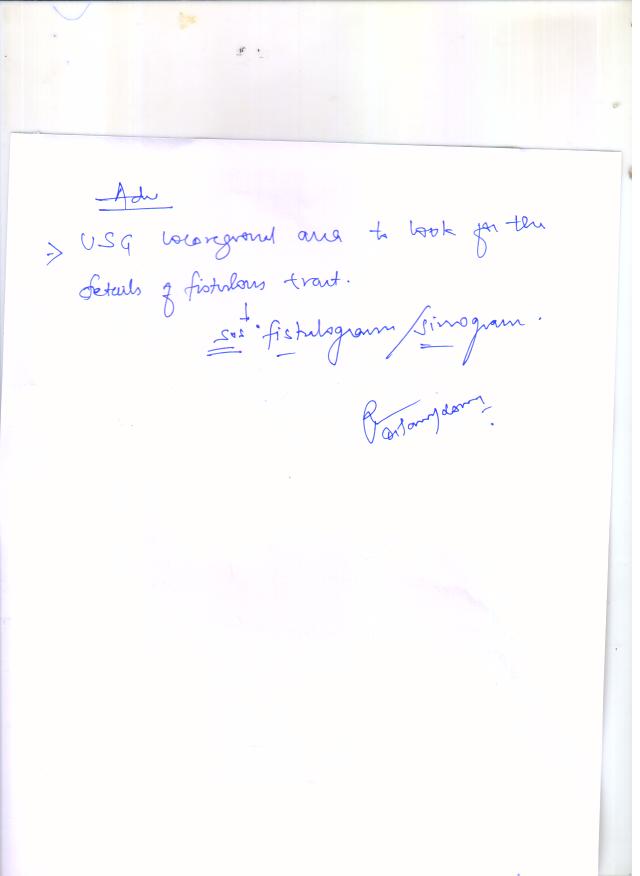 Adv
⇒ USG locoregional area to look for the
details of fistulous tract.
↓
SOS. fistulogram/sinogram.